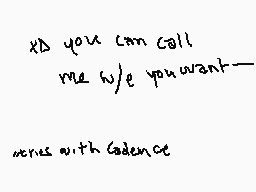 xD you can call
me w/e you want—
with Cadence